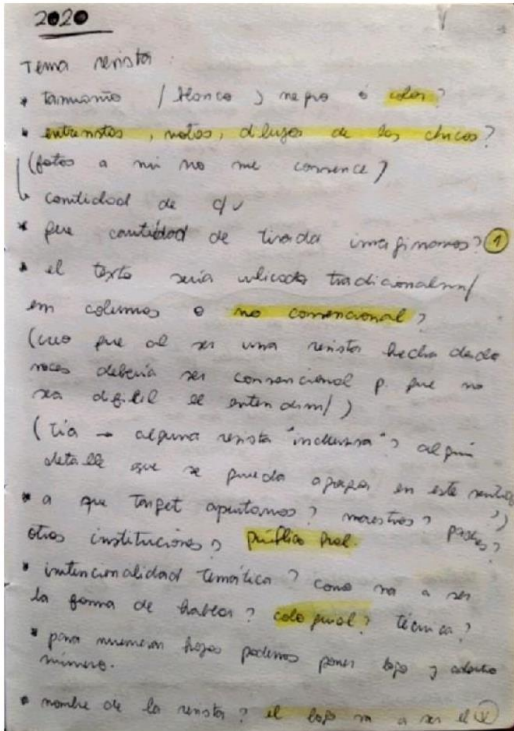 2020
Tema revista
* tamaño / blanco y negro ó color?
* entrevistas, notas, dibujos de los chicos?
(fotos a mi no me convence)
cantidad de c/u
* que cantidad de tirada imaginamos? 1
* el texto sería ubicado tradicionalm/
en columnas o no convencional?
(creo que al ser una revista hecha desde
voces debería ser convencional p. que no
sea dificil el entendim/)
(Tía → alguna revista "inclusiva"? algún
detalle que se pueda agregar en este sentido?)
* a que target apuntamos? maestros? padres?
otras instituciones? público gral.
* intencionalidad temática? como va a ser
la forma de hablar? coloquial? técnica?
* para numerar hojas podemos poner logo y adentro
número.
* nombre de la revista? el logo va a ser el